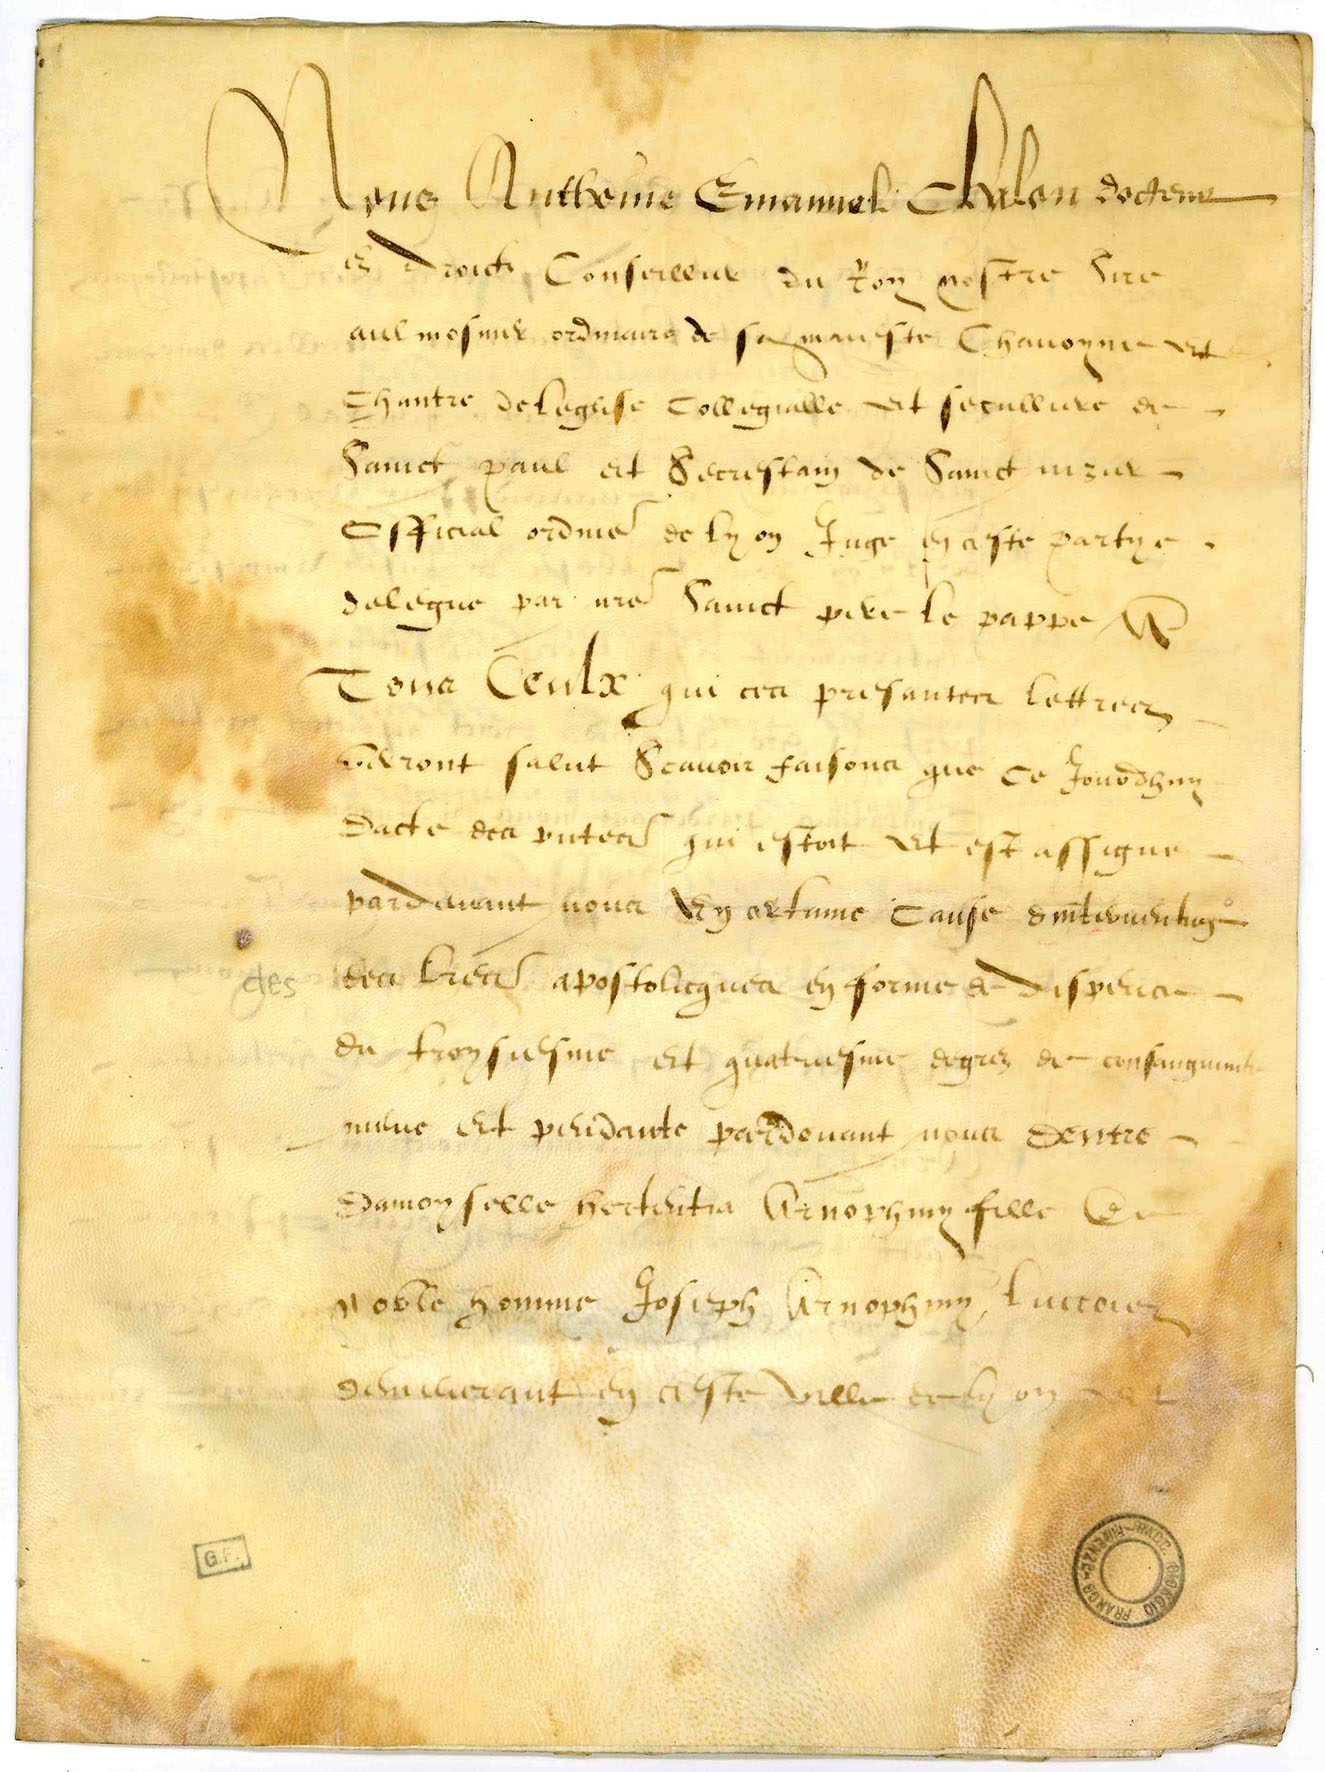 Nous Anthoine Emanuel Chalon docteur
es droictz Conseilleur du Roy nostre Sire
aulmosnier ordinaire de sa maiesté Chanoyne et
Chantre de leglise Collegialle et secullière de
Sainct paul et Secrestain de Sainct nizier
Official ordinē de lyon Juge en ceste partye
delegue par nrē Sainct pere le pappe A
Tous Ceulx qui ces presantes lettres
verront salut Scavoir faisons que ce Jourdhuy
dacte des pntes qui estoit et est assigne
pardevant nous En certaine Cause
des lrēs apostolicques en forme de dispence
du troysiesme et quatriesme degrez de consanguinité
meue et pendante pardevant nous dentre
damoyselle Hortentia Arnophiny fille de
Noble homme Joseph Arnophiny lucoys
demeurant en ceste ville de lyon et
des
G.F.
DIORGIO FRANGS
FIRENZE